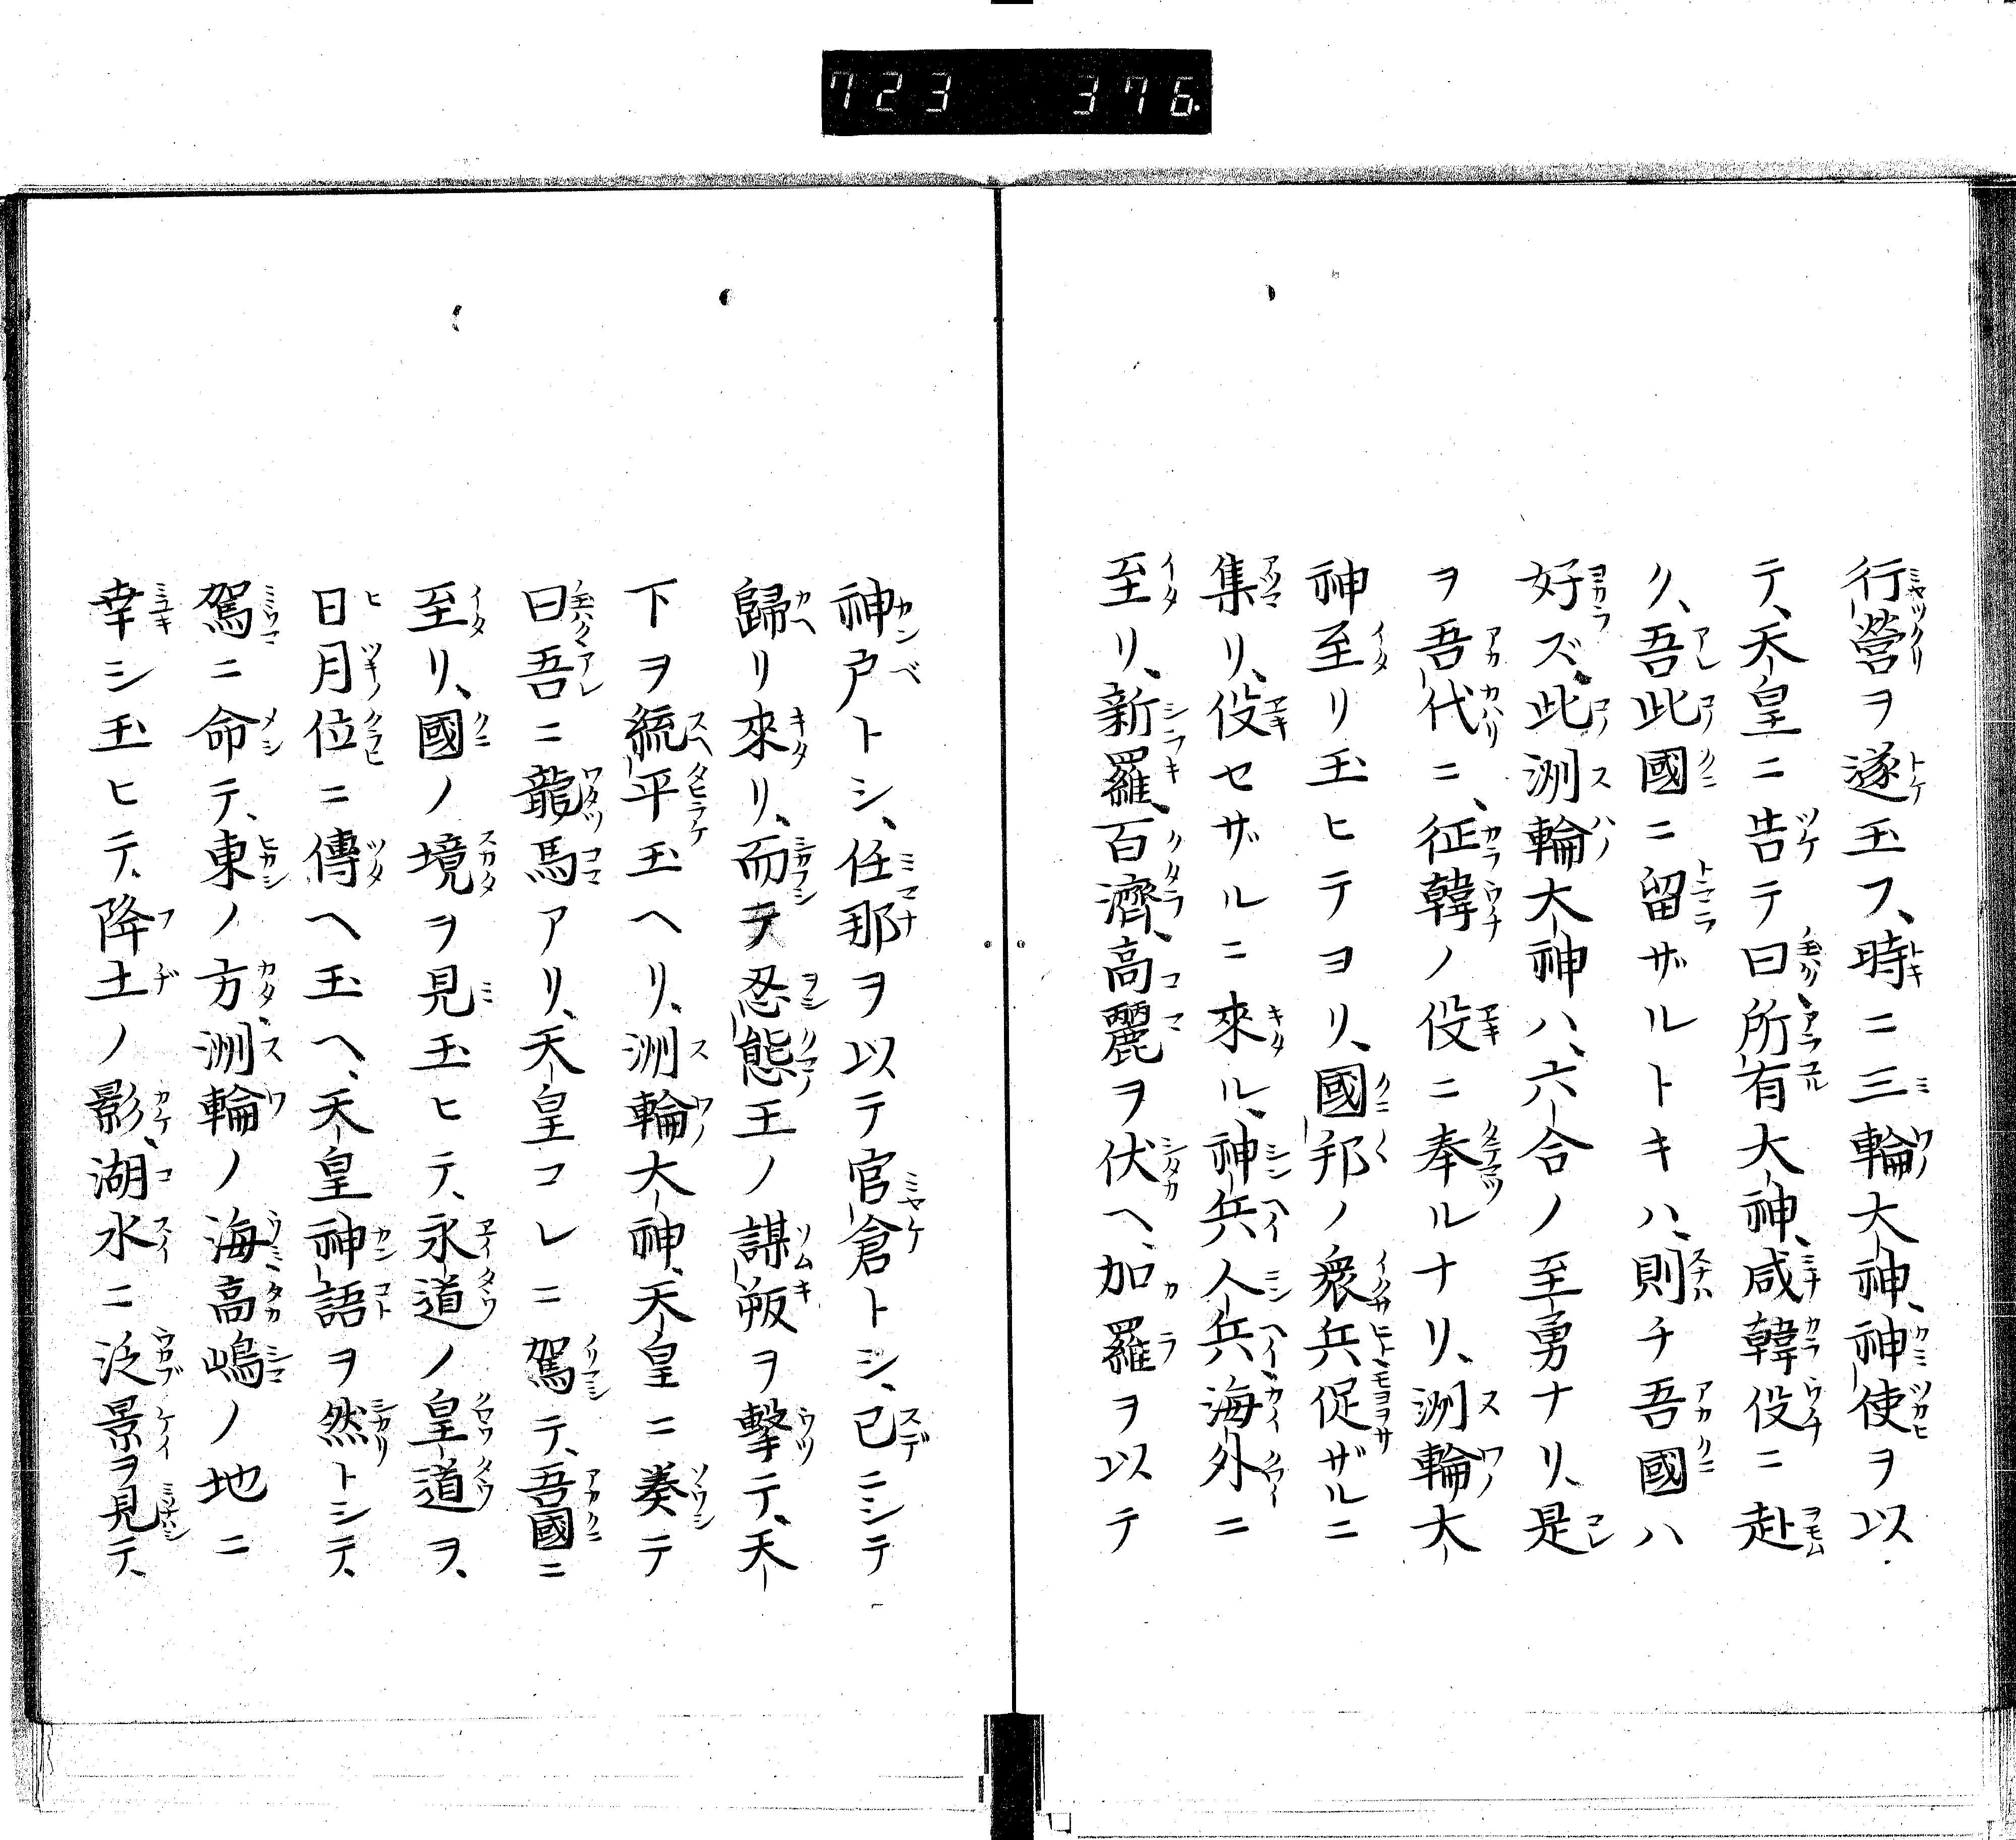 723 376
行營ヲ遂玉フ、時ニ三輪大神、神使ヲ以
テ、天皇ニ告テ曰、所有大神、咸韓役ニ赴
ク、吾此國ニ留ザルトキハ、則チ吾國ハ
好ズ、此洲輪大神ハ、六合ノ至勇ナリ、是
ヲ吾代ニ、征韓ノ役ニ奉ルナリ、洲輪大
神至リ玉ヒテヨリ、國邦ノ衆兵促ザルニ
集リ、役セザルニ來ル、神兵人兵、海外ニ
至リ、新羅、百濟、高麗ヲ伏ヘ、加羅ヲ以テ
神戸トシ、任那ヲ以テ官倉トシ、已ニシテ
歸リ來リ、而テ忍熊王ノ謀叛ヲ擊テ、天
下ヲ統平玉ヘリ、洲輪大神、天皇ニ奏テ
曰吾ニ龍馬アリ、天皇コレニ駕テ、吾國ニ
至リ、國ノ境ヲ見玉ヒテ、永道ノ皇道ヲ、
日月位ニ傳ヘ玉ヘ、天皇神語ヲ然トシテ、
駕ニ命テ、東ノ方、洲輪ノ海、高嶋ノ地ニ
幸シ玉ヒテ、降土ノ影、湖水ニ泛景ヲ見テ、